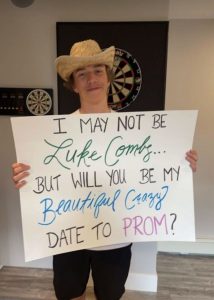 I MAY NOT BE
Luke Combs...
BUT WILL YOU BE MY
Beautiful Crazy
DATE TO PROM?